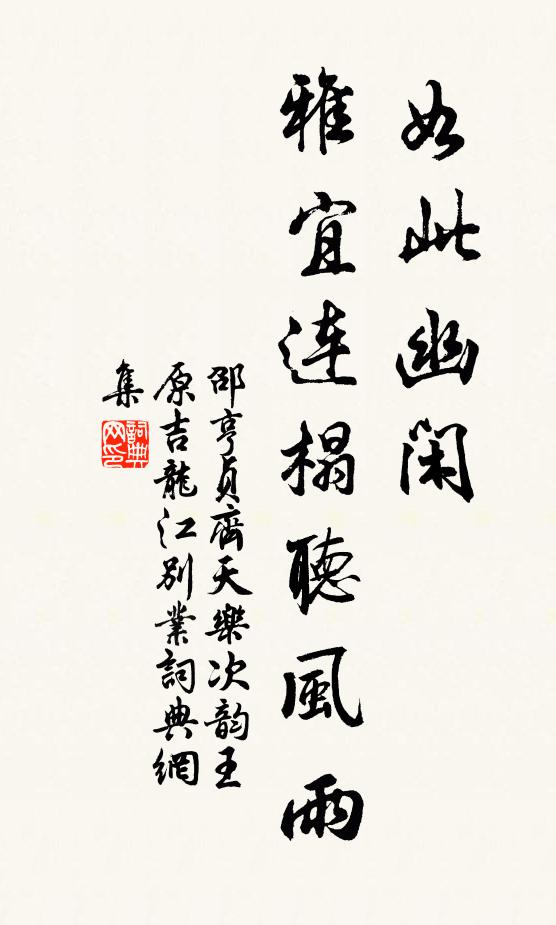 如此幽閑
雅宜連榻聽風雨
邵亨貞齊天樂次韵王
原吉龍江別業詞典網
集
詞典网印